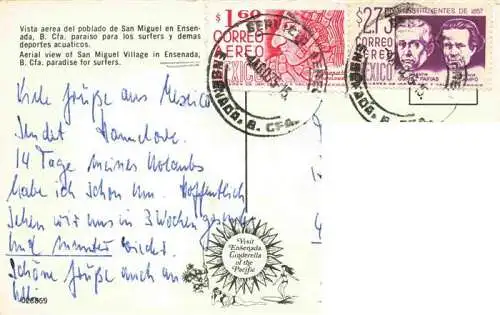 Vista aerea del poblado de San Miguel en Ensenada, B. Cfa. paraiso para los surfers y demas
deportes acuaticos.
Aerial view of San Miguel Village in Ensenada,
B. Cfa. paradise for surfers.
$1.60
CORREO
AEREO
MEXICO
$2.75
CONSTITUYENTES DE 1857
CORREO
AEREO
MEXICO
ENSENADA, B. CFA.
ENSENADA, B. CFA.
Viele Grüße aus Mexico
sendet Hannelore.
14 Tage meines Urlaubs
habe ich schon um. Hoffentlich
sehen wir uns in 3 Wochen gesund
und munter wieder.
Schöne Grüße auch an
Visit
Ensenada
Cinderella
of the
Pacific
028869